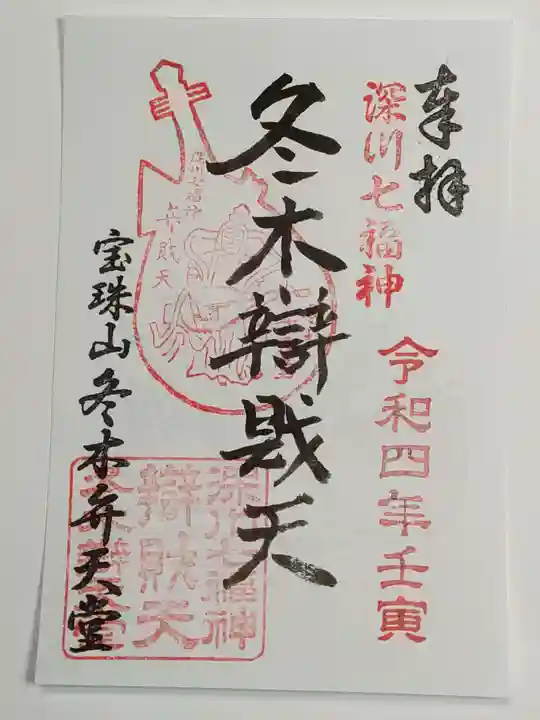 奉拝
深川七福神
令和四年壬寅
冬木辯財天
深川七福神
弁財天
宝珠山冬木弁天堂
深川七福神
辯財天
冬木弁天堂